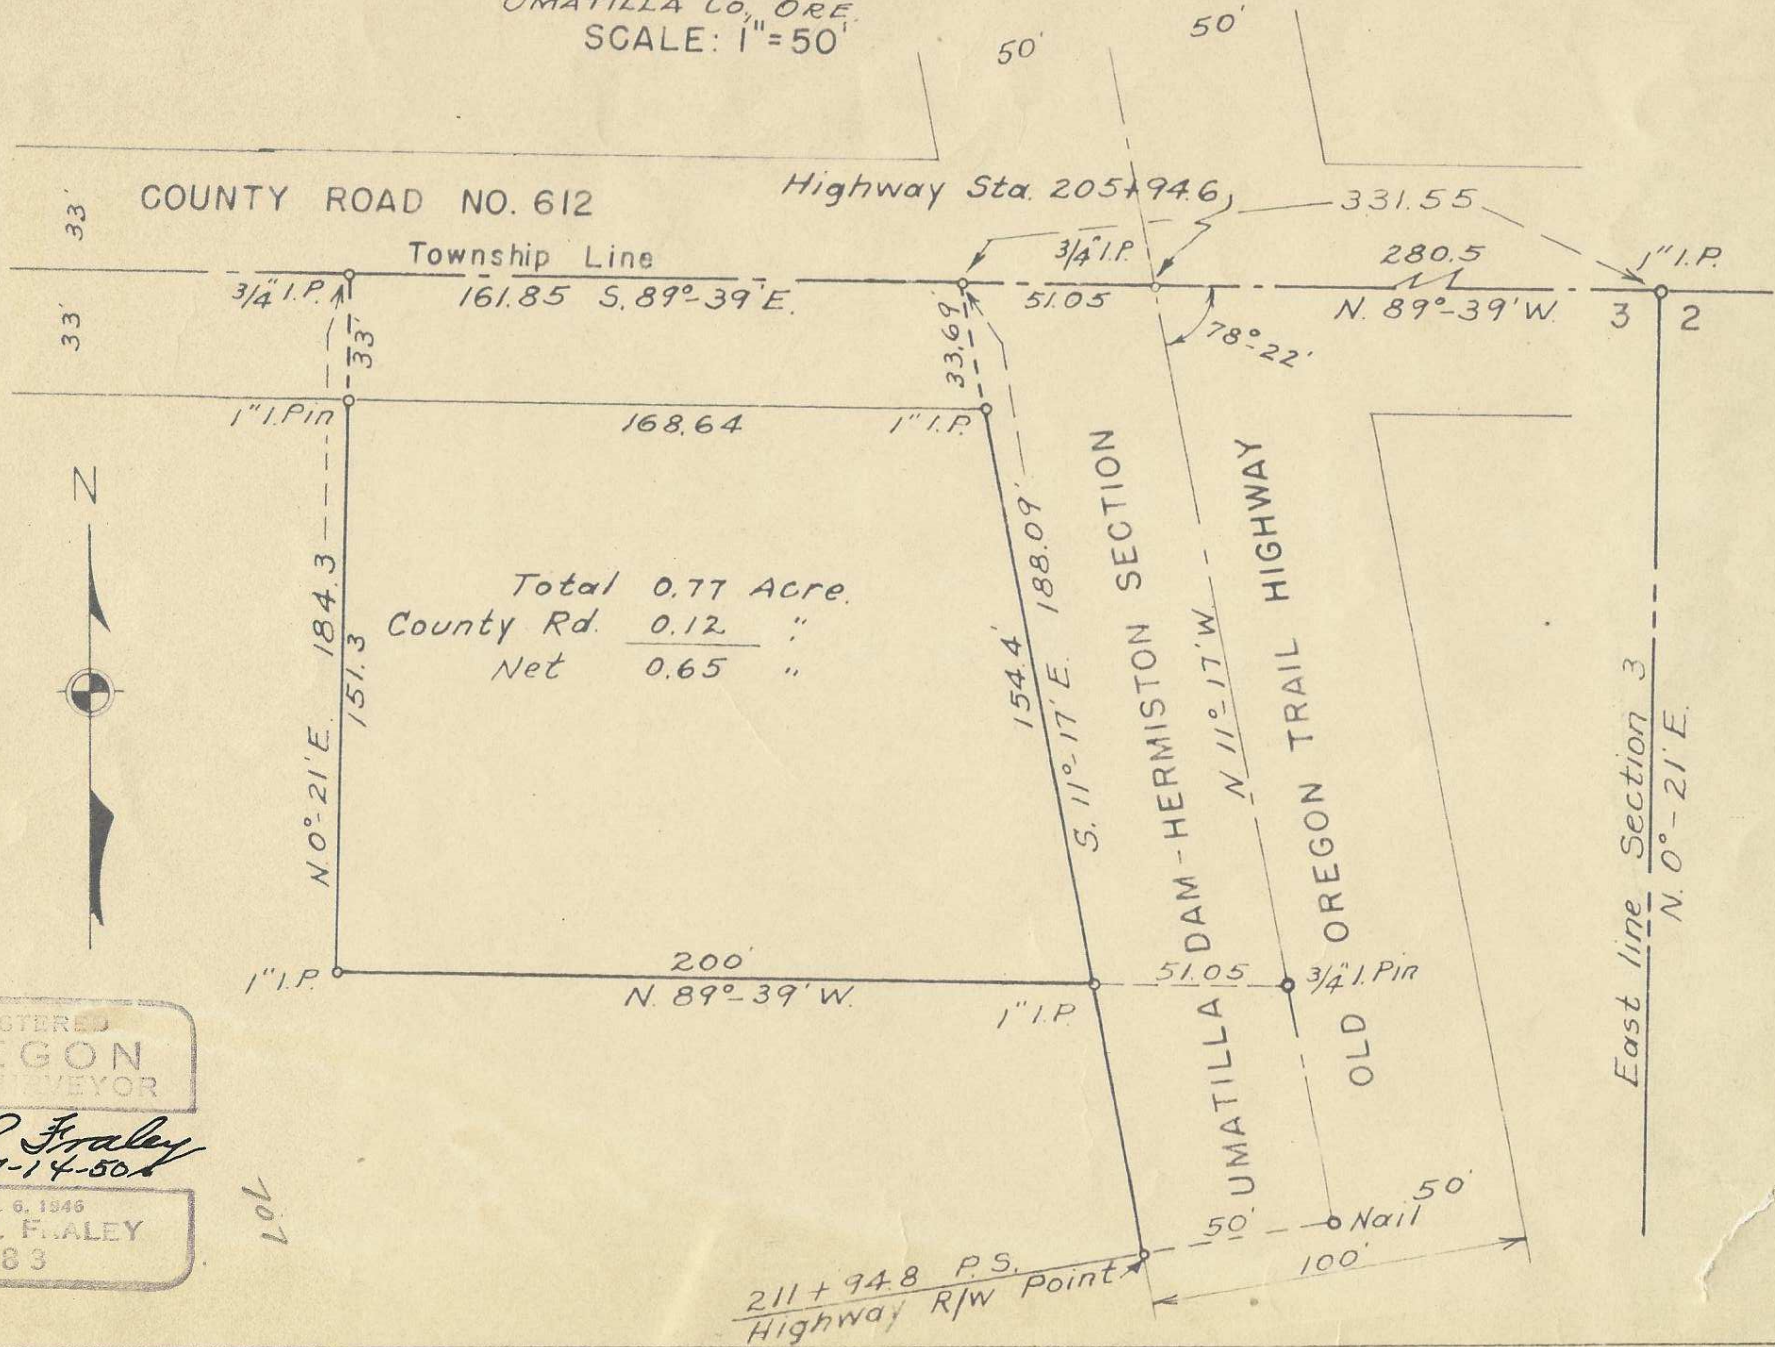 UMATILLA CO., ORE.
SCALE: 1"=50'
50'
50'
33'
COUNTY ROAD NO. 612
Highway Sta. 205+94.6
331.55
Township Line
3/4" I.P.
280.5
1" I.P.
3/4" I.P.
161.85 S. 89°-39' E.
51.05
N. 89°-39' W.
3
2
33'
33'
33.69'
78°-22'
1" I.Pin
168.64
1" I.P.
N
N. 0°-21' E. 184.3
151.3
Total 0.77 Acre.
County Rd. 0.12 "
Net 0.65 "
154.4'
S. 11°-17' E. 188.09'
UMATILLA DAM-HERMISTON SECTION
N 11°-17' W.
OLD OREGON TRAIL HIGHWAY
East line Section 3
N. 0°-21' E.
1" I.P.
200'
N. 89°-39' W.
1" I.P.
51.05
3/4" I.Pin
STERED
EGON
RVEYOR
Fraley
-14-50
6, 1946
FRALEY
83
707
50'
Nail
50'
100'
211+94.8 P.S.
Highway R/W Point